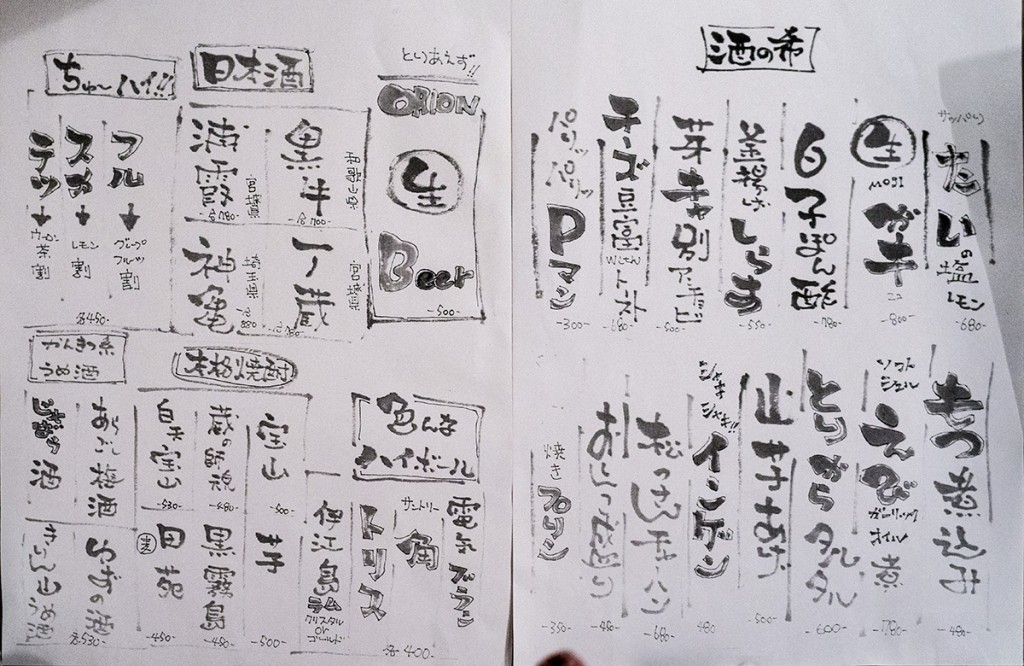 酒の希
サッパリ
たいの塩レモン
-680-
生ガキ
-800-
白子ぽん酢
-780-
釜揚げしらす
-550-
芽キャ別アンチョビ
-500-
チーズ豆富withトースト
-680-
パリッパリッ
Pマン
-300-
もつ煮込み
-480-
ソフトシェル
えびガーリックオイル煮
-780-
とりからタルタル
-600-
山芋あげ
-500-
シャキシャキ!!
インゲン
480
松っさんチャーハン
-680-
-480-
焼きプリン
-350-
とりあえず!!
ORION
生
Beer
-500-
日本酒
和歌山県
黒牛
-各700-
宮城県
浦霞
-各780-
宮城県
一ノ蔵
-各780-
埼玉県
神亀
-各880
ちゅ〜ハイ!!
フル
↓
グレープフルーツ割
スメ
↓
レモン割
ラテッ
↓
ウーロン茶割
各450-
色んなハイボール
電気ブラン
サントリー
角
トリス
-各400-
伊江島ラム
クリスタル
or
ゴールド
本格焼酎
宝山
-500-
芋
-500-
蔵の師魂
-480-
黒霧島
-450-
白天宝山
-530-
麦
田苑
-450-
かんきつ系
うめ酒
あらごし梅酒
じゃばら酒
ゆずの酒
きりん山うめ酒
各530-